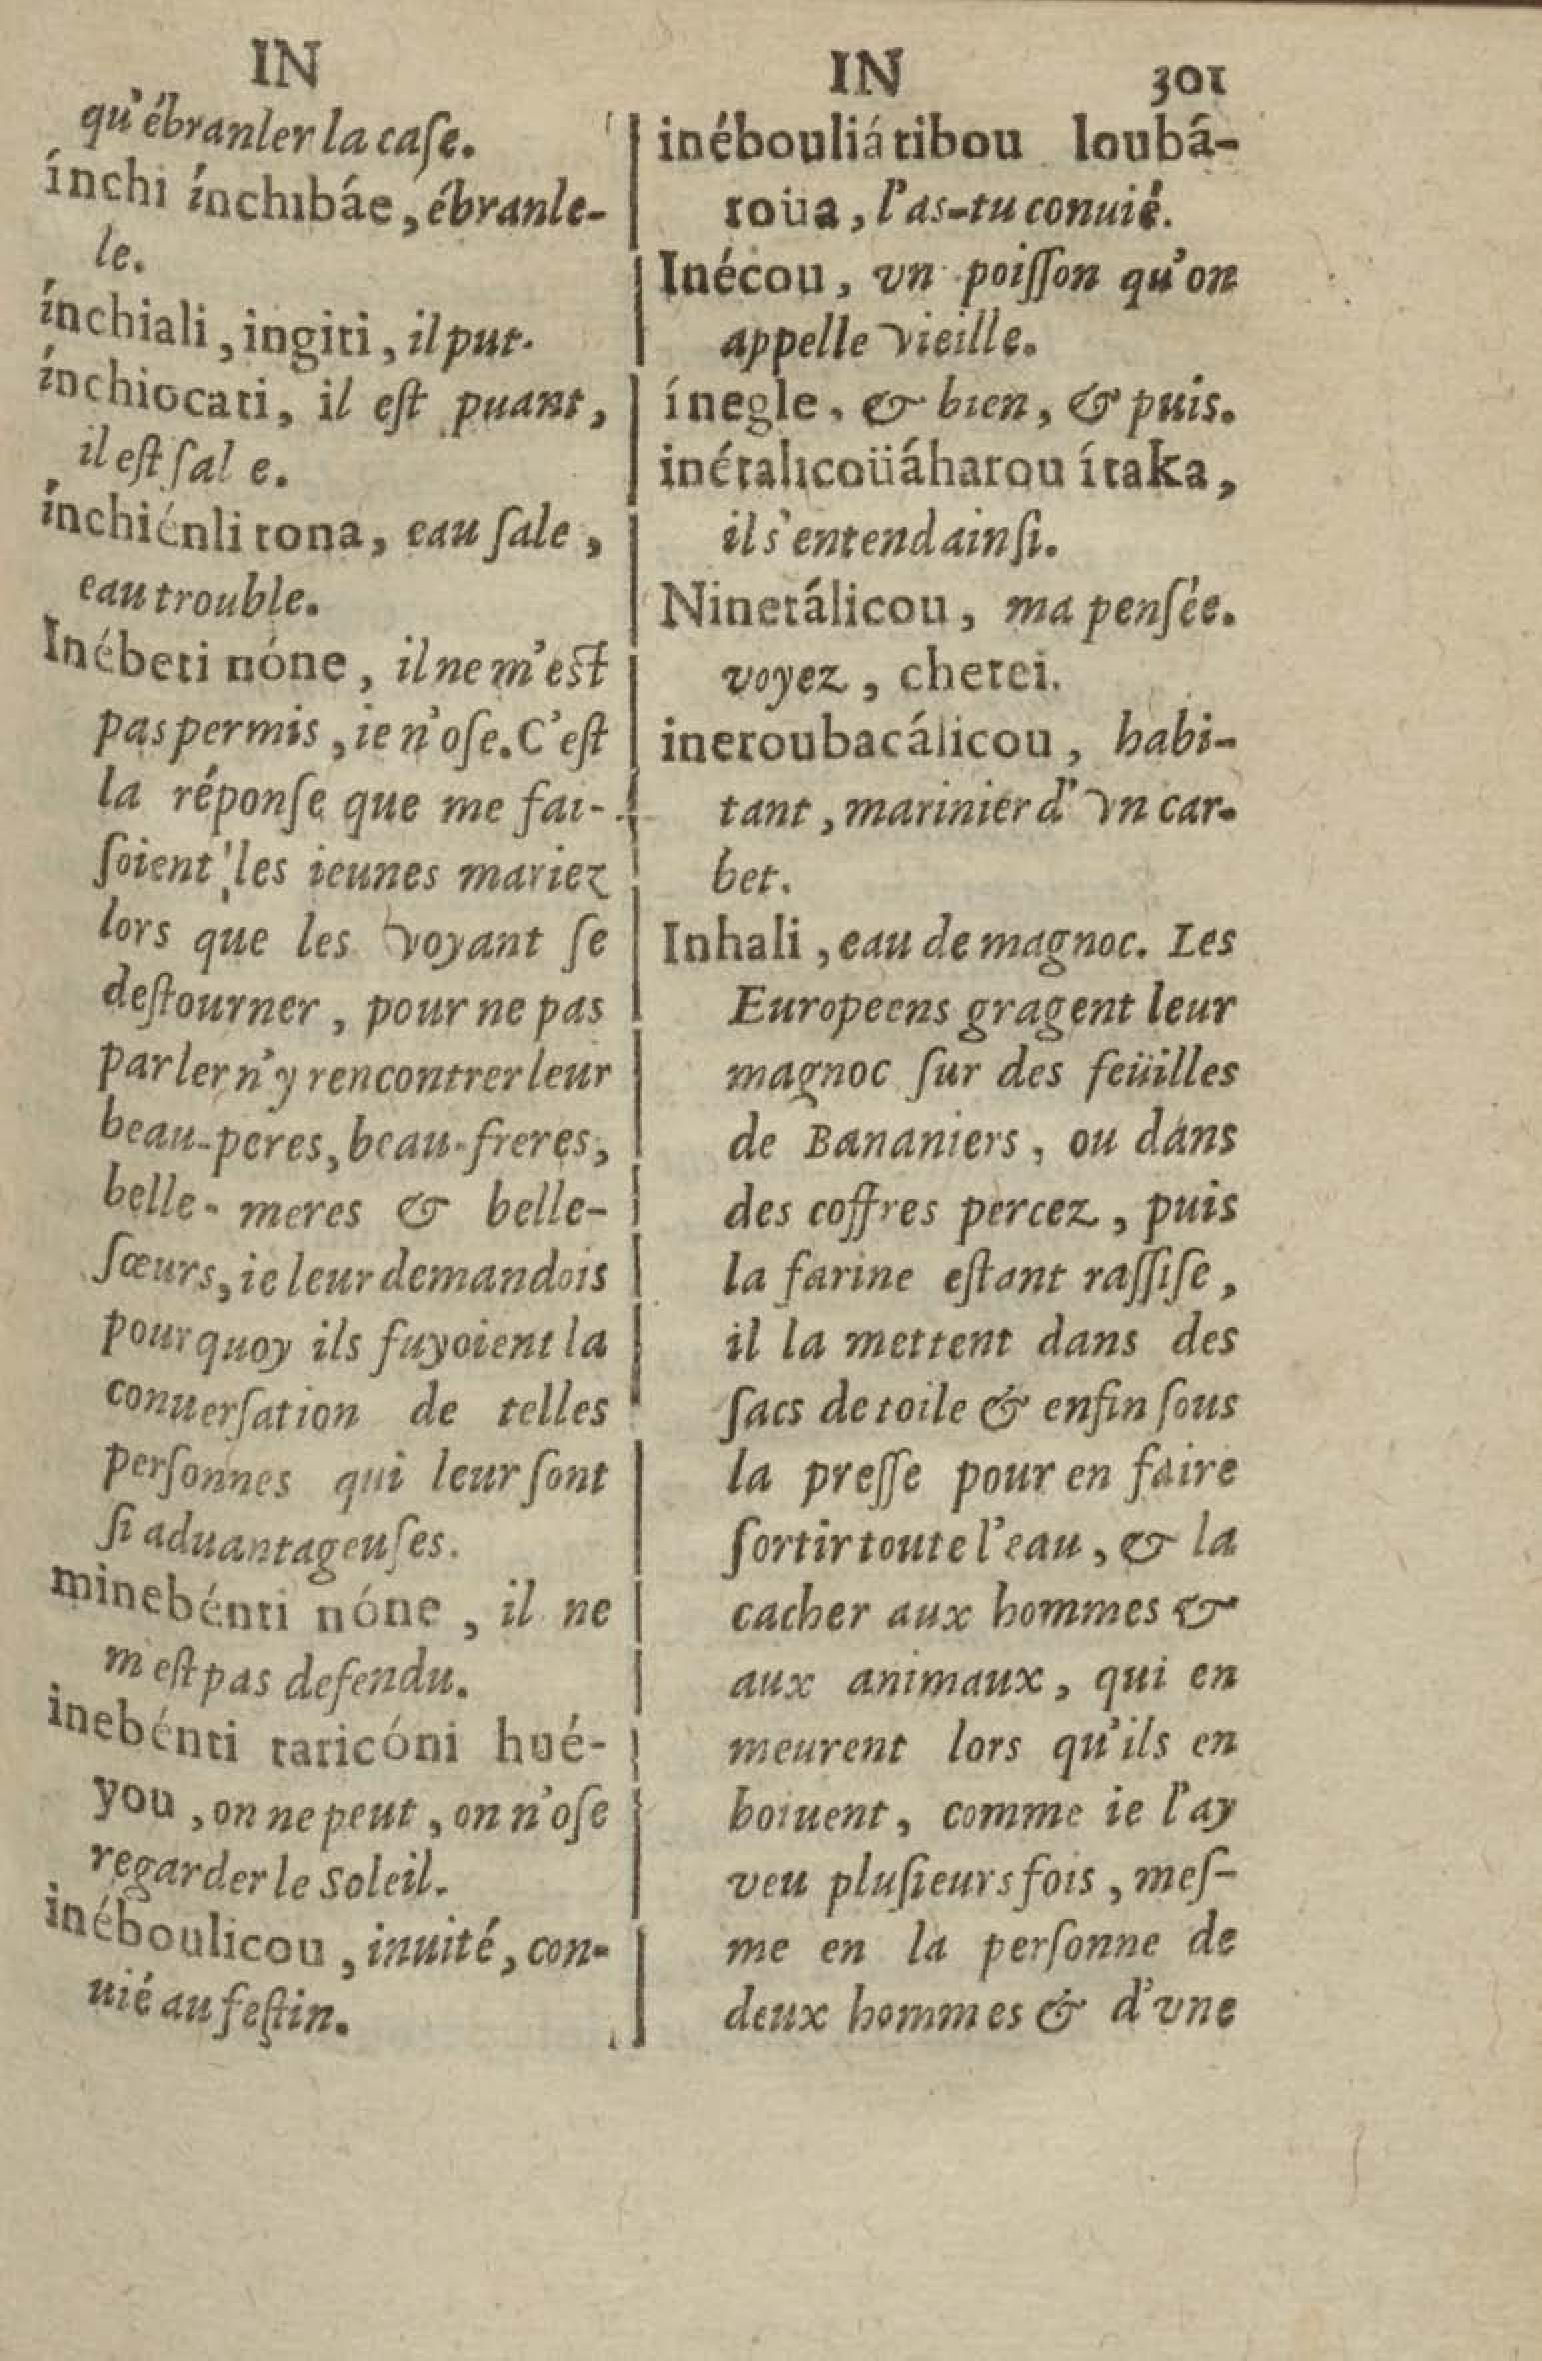 IN
qu'ébranler la caſe.
ínchi ínchibáe, ébranle-
le.
ínchiali, ingiti, il put.
ínchiocati, il eſt puant,
il eſt ſal e.
ínchiénli tona, eau ſale,
eau trouble.
Inébeti nóne, il ne m'eſt
pas permis, ie n'oſe. C'eſt
la réponſe que me fai-
ſoient les ieunes mariez
lors que les voyant ſe
deſtourner, pour ne pas
parler n'y rencontrer leur
beau-peres, beau-freres,
belle-meres & belle-
ſœurs, ie leur demandois
pourquoy ils fuyoient la
conuerſation de telles
perſonnes qui leur ſont
ſi aduantageuſes.
minebénti nóne, il ne
m'eſt pas defendu.
inebénti taricóni hué-
you, on ne peut, on n'oſe
regarder le Soleil.
inéboulicou, inuité, con-
uié au feſtin.
IN 301
inébouliátibou loubá-
roüa, l'as-tu conuié.
Inécou, vn poiſſon qu'on
appelle vieille.
ínegle, & bien, & puis.
inétalicoüáharou ítaka,
il s'entend ainſi.
Ninetálicou, ma penſée.
voyez, chetei.
ineroubacálicou, habi-
tant, marinier d'vn car-
bet.
Inhali, eau de magnoc. Les
Europeens gragent leur
magnoc ſur des feüilles
de Bananiers, ou dans
des coffres percez, puis
la farine eſtant raſſiſe,
il la mettent dans des
ſacs de toile & enfin ſous
la preſſe pour en faire
ſortir toute l'eau, & la
cacher aux hommes &
aux animaux, qui en
meurent lors qu'ils en
boiuent, comme ie l'ay
veu pluſieurs fois, meſ-
me en la perſonne de
deux hommes & d'vne